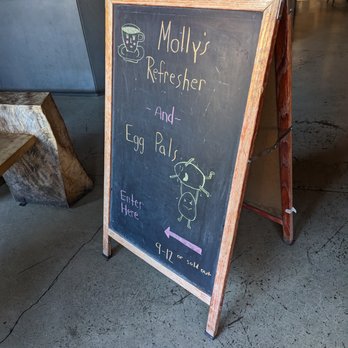 Molly's
Refresher
- And -
Egg Pals
Enter
Here
9-12 or sold out